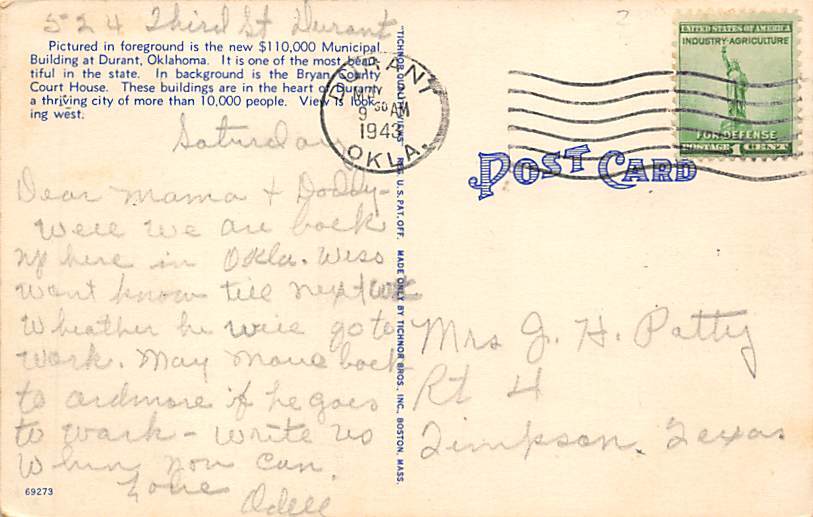 524 Third St Durant
Pictured in foreground is the new $110,000 Municipal
Building at Durant, Oklahoma. It is one of the most beau-
tiful in the state. In background is the Bryan County
Court House. These buildings are in the heart of Durant,
a thriving city of more than 10,000 people. View is look-
ing west.
Saturday
Dear Mama + Daddy-
Well we are back
up here in Okla. Wess
wont know till next wk
wheather he will go to
work. May move back
to ardmore if he goes
to work - write us
when you can.
Love
Odell
69273
"TICHNOR QUALITY VIEWS" REG. U.S. PAT. OFF. MADE ONLY BY TICHNOR BROS. INC., BOSTON, MASS.
DURANT
9 30 AM
1943
OKLA.
UNITED STATES OF AMERICA
INDUSTRY-AGRICULTURE
FOR DEFENSE
POSTAGE 1 CENTS
POST CARD
Mrs J. H. Patty
Rt 4
Timpson, Texas